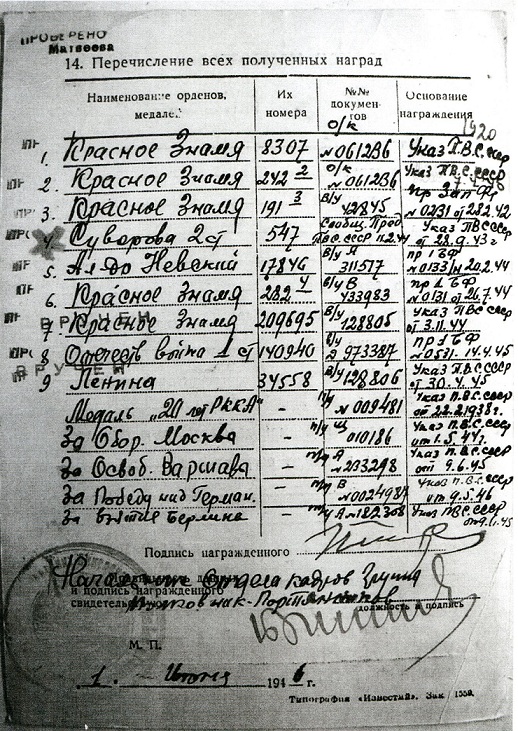 ПРОВЕРЕНО
Матвеева
14. Перечисление всех полученных наград
Наименование орденов, медалей. Их номера №№ документов Основание награждения
о/к 1920
1. Красное Знамя 8307 №061236 Указ П.В.С. ссср
2. Красное Знамя 242 2 о/к №061236 Указ П.В.С. ссср
3. Красное Знамя 191 3 в/у 12845 пр Зап Ф №0231 от 28.2.42
4. Суворова 2 ст 547 Сообщ. През. ПВС.СССР Указ ПВСССР от 28.9.43 г
5. Ал-др Невский 17846 в/у А 311517 пр 1 БФ №0133/н 20.2.44
6. Красное Знамя 282 4 в/у В 433983 пр 1 БФ №0131 от 26.7.44
ВРУЧЕН
7 Красное Знамя 209695 в/у 128805 Указ ПВС ссср от 3.11.44
8 Отечеств война 1 ст 140940 973387 ПР 1 БФ №0531. 14.4.45
ВРУЧЕН
9 Ленина 34558 в/у 128806 Указ П.В.СССР от 30.4.45
Медаль „20 лет РККА" – п/у №009481 Указ П.В.С. ссср от 22.2.1938 г.
За Обор. Москва – п/у Щ 010186 Указ П.В.С. ссср от 1.5.44 г.
За Освоб. Варшава – п/у А №233298 Указ П.В.С. ссср от 9.6.45
За Победу над Герман. – п/у В №0024984 Указ П.В.С. ссср от 9.5.46
За взятие Берлина – п/у А №182308 Указ ПВС.ссср от 9.6.45
Подпись награжденного
Начальник отдела кадров Группы
и подпись награжденного
свидетельствую
Полковник
должность и подпись
М. П.
1. Июня 1946 г.
Типография «Известий». Зак 1559.